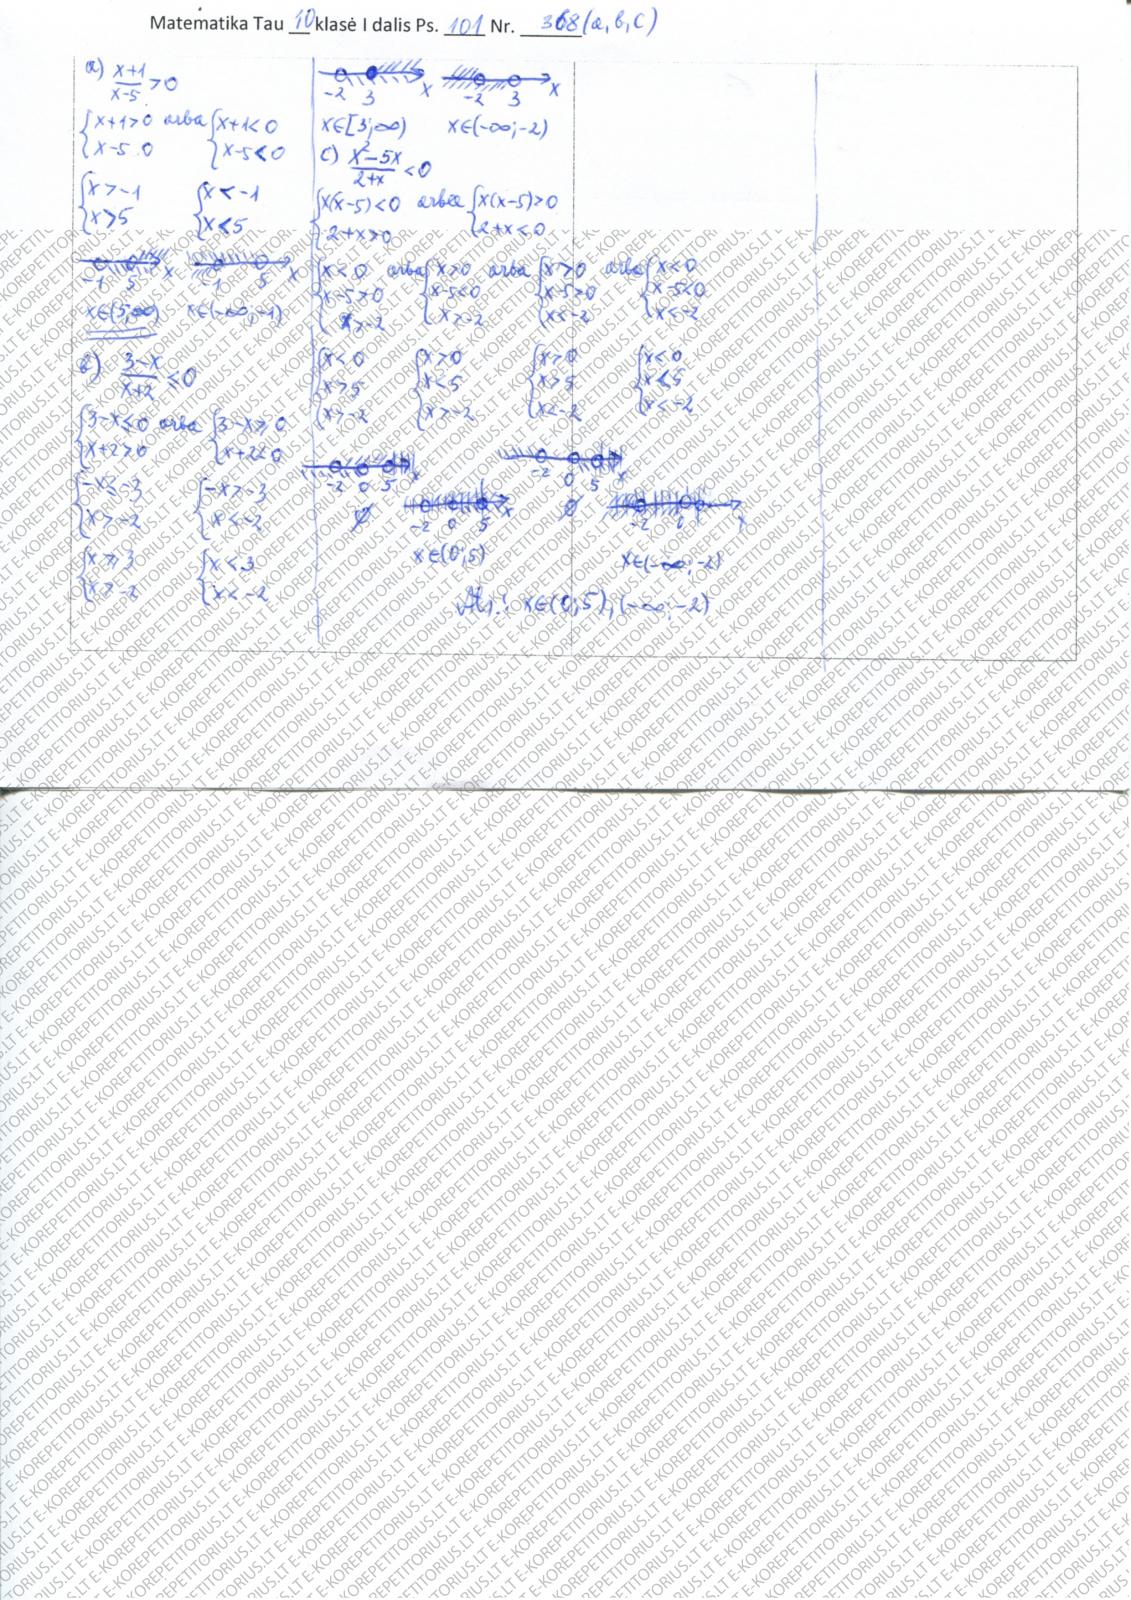 Matematika Tau 10 klasė I dalis Ps. 101 Nr. 368 (a, b, c)
a) x+1/x-5 > 0
{x+1>0 arba {x+1<0
{x-5 0 {x-5<0
{x>-1 {x<-1
{x>5 {x<5
-1 5 x -1 5 x
x∈(5;∞) x∈(-∞;-1)
b) 3-x/x+2 ≤ 0
{3-x≤0 arba {3-x≥0
{x+2>0 {x+2<0
{-x≤-3 {-x>-3
{x>-2 {x<-2
{x≥3 {x<3
{x>-2 {x<-2
-2 3 x -2 3 x
x∈[3;∞) x∈(-∞;-2)
c) x²-5x/2+x < 0
{x(x-5)<0 arba {x(x-5)>0
{2+x>0 {2+x<0
{x<0 arba {x>0 arba {x>0 arba {x<0
{x-5>0 {x-5<0 {x-5>0 {x-5<0
{x>-2 {x>-2 {x<-2 {x<-2
{x<0 {x>0 {x>0 {x<0
{x>5 {x<5 {x>5 {x<5
{x>-2 {x>-2 {x<-2 {x<-2
-2 0 5 x -2 0 5 x
∅ -2 0 5 x ∅ -2 0 x
x∈(0;5) x∈(-∞;-2)
Ats.: x∈(0;5),(-∞;-2)
E-KOREPETITORIUS.LT